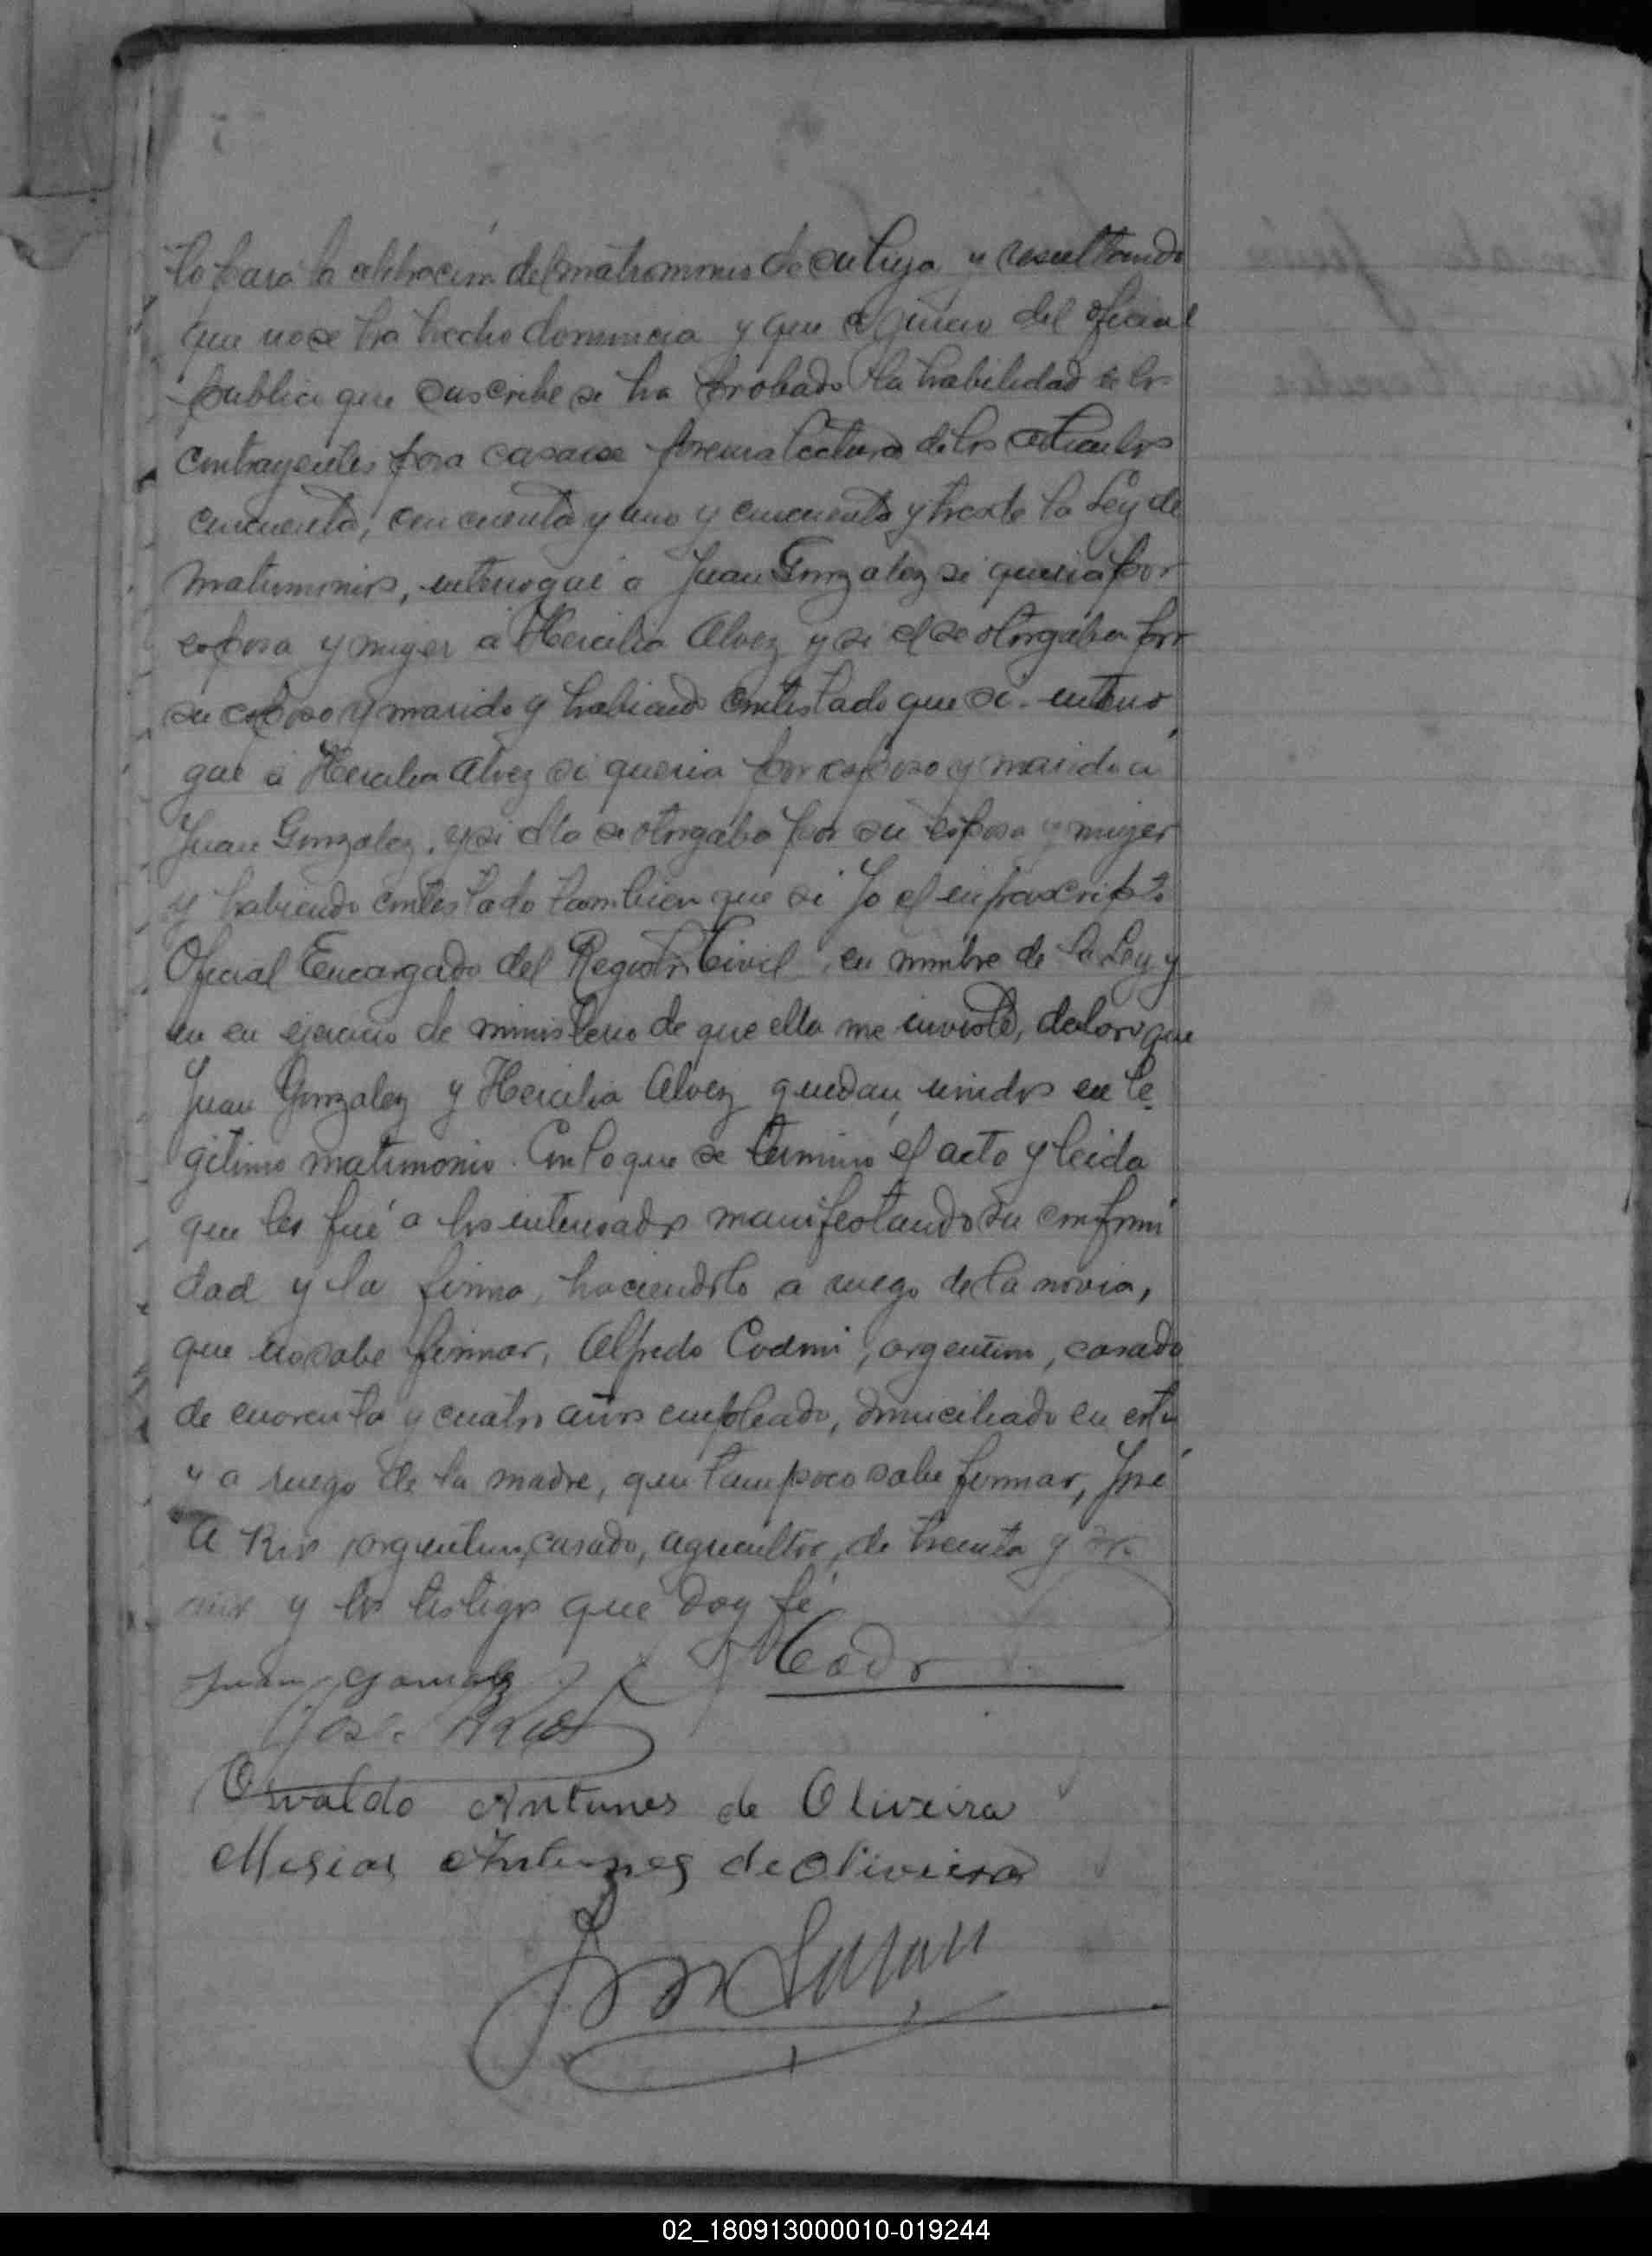 to para la celebracion del matrimonio de su hija y resultando
que no se ha hecho denuncia y que a juicio del oficial
publico que suscribe se ha probado la habilidad de los
contrayentes para casarse previa lectura de los articulos
cincuenta, cincuenta y uno y cincuenta y tres de la Ley de
matrimonios, interrogué a Juan Gonzalez si queria por
esposa y mujer a Hercilia Alvez y si el se otorgaba por
su esposo y marido y habiendo contestado que si. interro
gué a Hercilia Alvez si queria por esposo y marido a
Juan Gonzalez, y si ella se otorgaba por su esposa y mujer
y habiendo contestado tambien que si Yo el infrascripto
Oficial Encargado del Registro Civil, en nombre de la Ley y
en en ejercicio de ministerio de que ella me inviste, declaro que
Juan Gonzalez y Hercilia Alvez quedan unidos en le
gitimo matrimonio. Con lo que se terminó el acto y leida
que les fué a los interesados manifestando su conformi
dad y la firma, haciendolo a ruego de la novia,
que no sabe firmar, Alfredo Codini, argentino, casado
de cuarenta y cuatro años empleado, domiciliado en esta
y a ruego de la madre, que tampoco sabe firmar, José
A Rios, argentino, casado, agricultor, de treinta y
años y los testigos que doy fé
Juan Gonzalez
José Rios
Osvaldo Antunes de Oliveira
Mesias Antunes de Oliveira
02_180913000010-019244